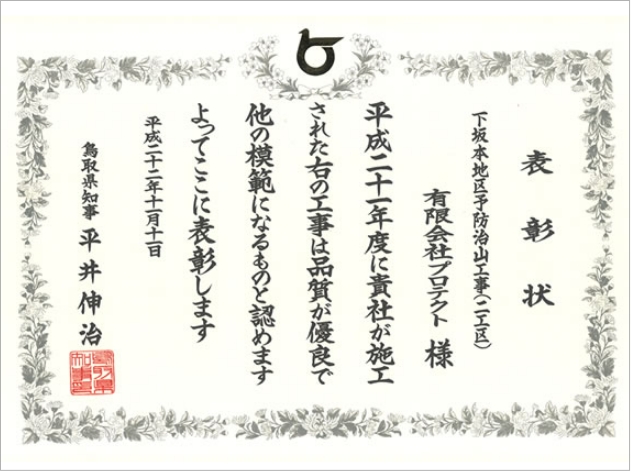 表彰状
下坂本地区予防治山工事(二工区)
有限会社プロテクト 様
平成二十一年度に貴社が施工
された右の工事は品質が優良で
他の模範になるものと認めます
よってここに表彰します
平成二十二年十一月十一日
鳥取県知事 平井伸治